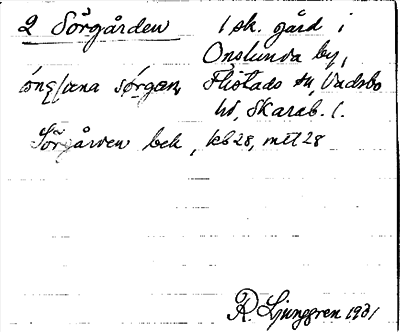 2 Sörgården 1 sk. gård i
Onslunda by,
sǫ́rgæn, Flistads sn, Vadsbo
hd, Skarab. l.
Sörgården bek, kb 28, mtl 28
R. Ljunggren 1931